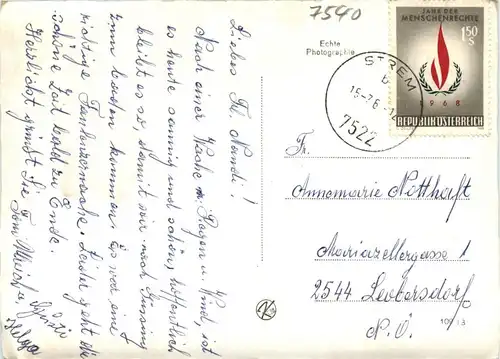 7540
Liebes Frl. Nandi!
Nach einer Woche Regen u. Wind ist
es heute sonnig und schön, hoffentlich
bleibt es so, damit wir nach Güssing
zum baden kommen. Es war eine
richtige Faulenzerwoche. Leider geht die
schöne Zeit bald zu Ende.
Herzlichst grüßt Sie
Helga
Echte
Photographie
STREM
b
15-7.6
7522
JAHR DER
MENSCHENRECHTE
1.50
S
1968
REPUBLIK ÖSTERREICH
Fr.
Annemarie Notthaft
Mariazellergasse 1
2544 Leobersdorf
N.Ö.